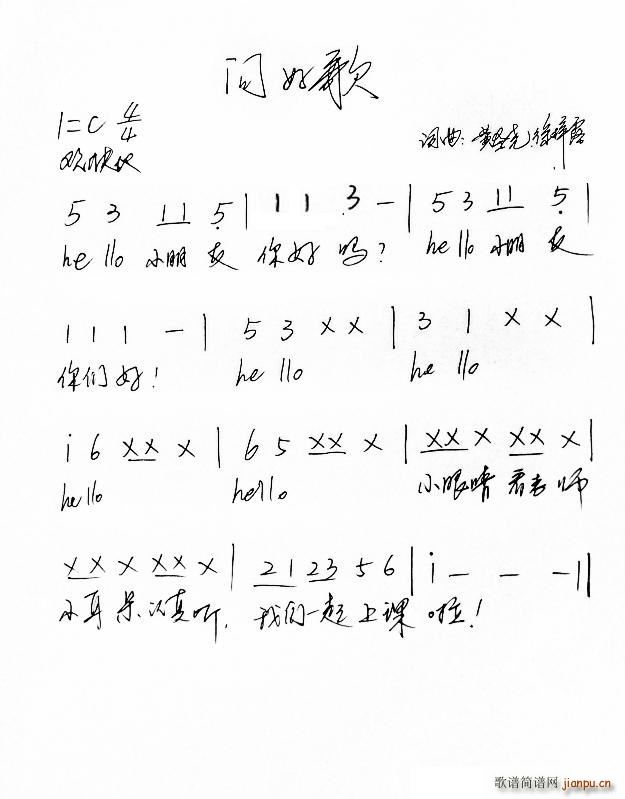 问好歌
1=C 4/4
词曲:
欢快地
5 3 1 1 5̣ | 1 1 3 - | 5 3 1 1 5̣ |
hello 小朋友 你好吗? hello 小朋友
1 1 1 - | 5 3 x x | 3 1 x x |
你们好! hello hello
i 6 x x x | 6 5 x x x | x x x x x x |
hello hello 小眼睛 看老师
x x x x x x | 2 1 2 3 5 6 | i - - - ||
小耳朵认真听, 我们一起上课啦!
歌谱简谱网
jianpu.cn